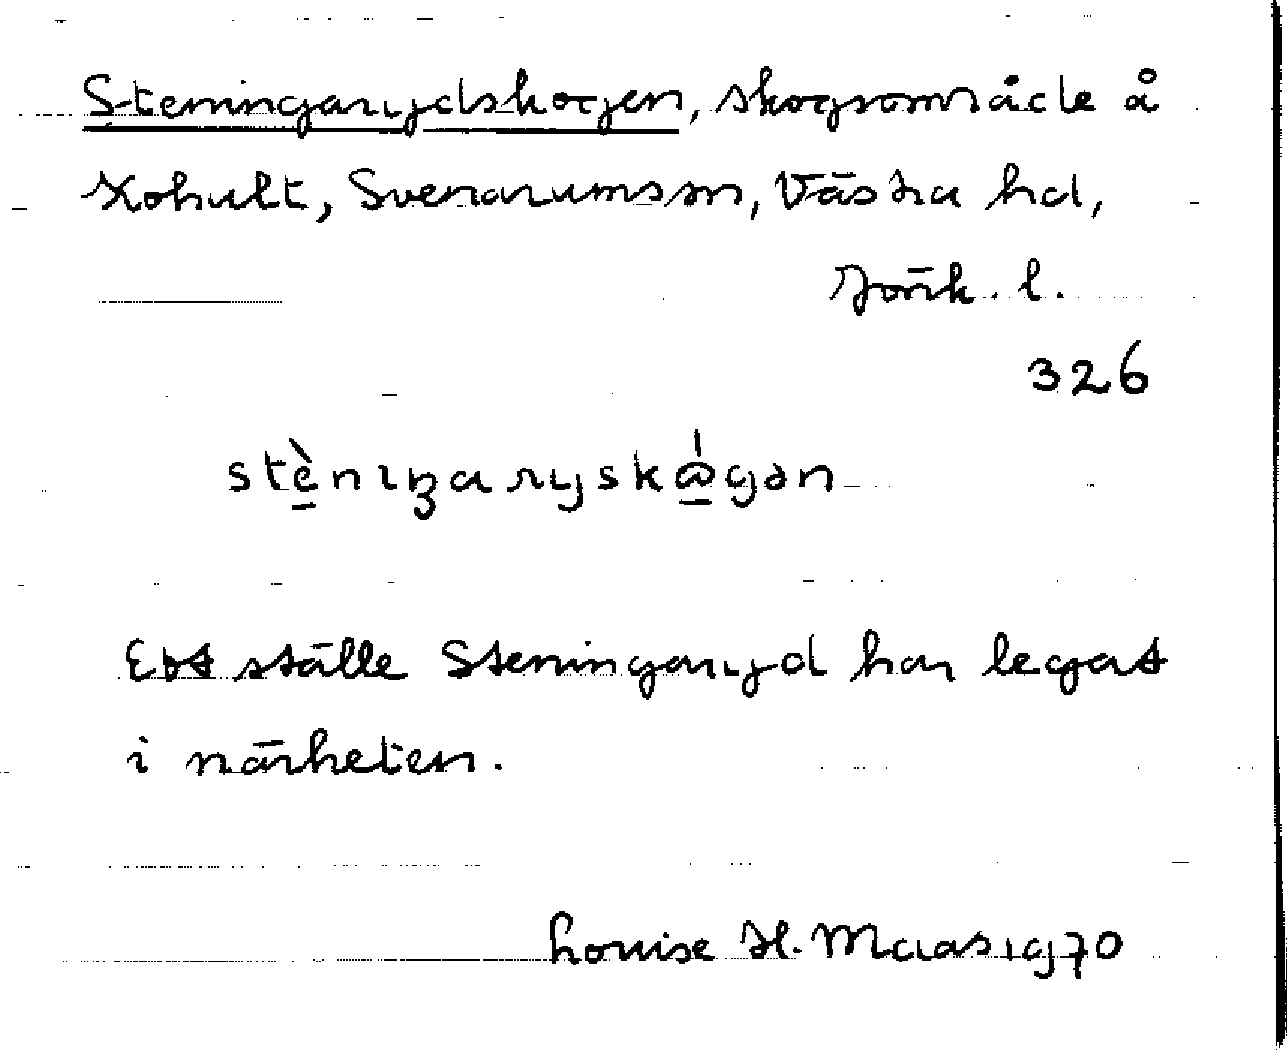 Steningarydskogen, skogsområde å
Kohult, Svenarumssn, Västra hd,
Jönk. l.
326
stè̠nɩŋaryskⱥ̠́gən
Ett ställe Steningaryd har legat
i närheten.
Louise H. Maas 1970